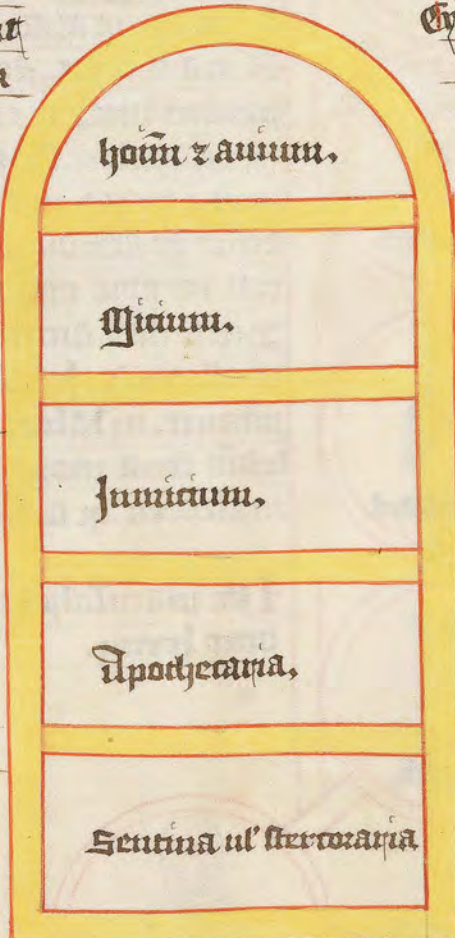 hoi̅m ⁊ auium.
Mitium.
Inmitium.
Apothecaria.
Sentina ul' stercoraria